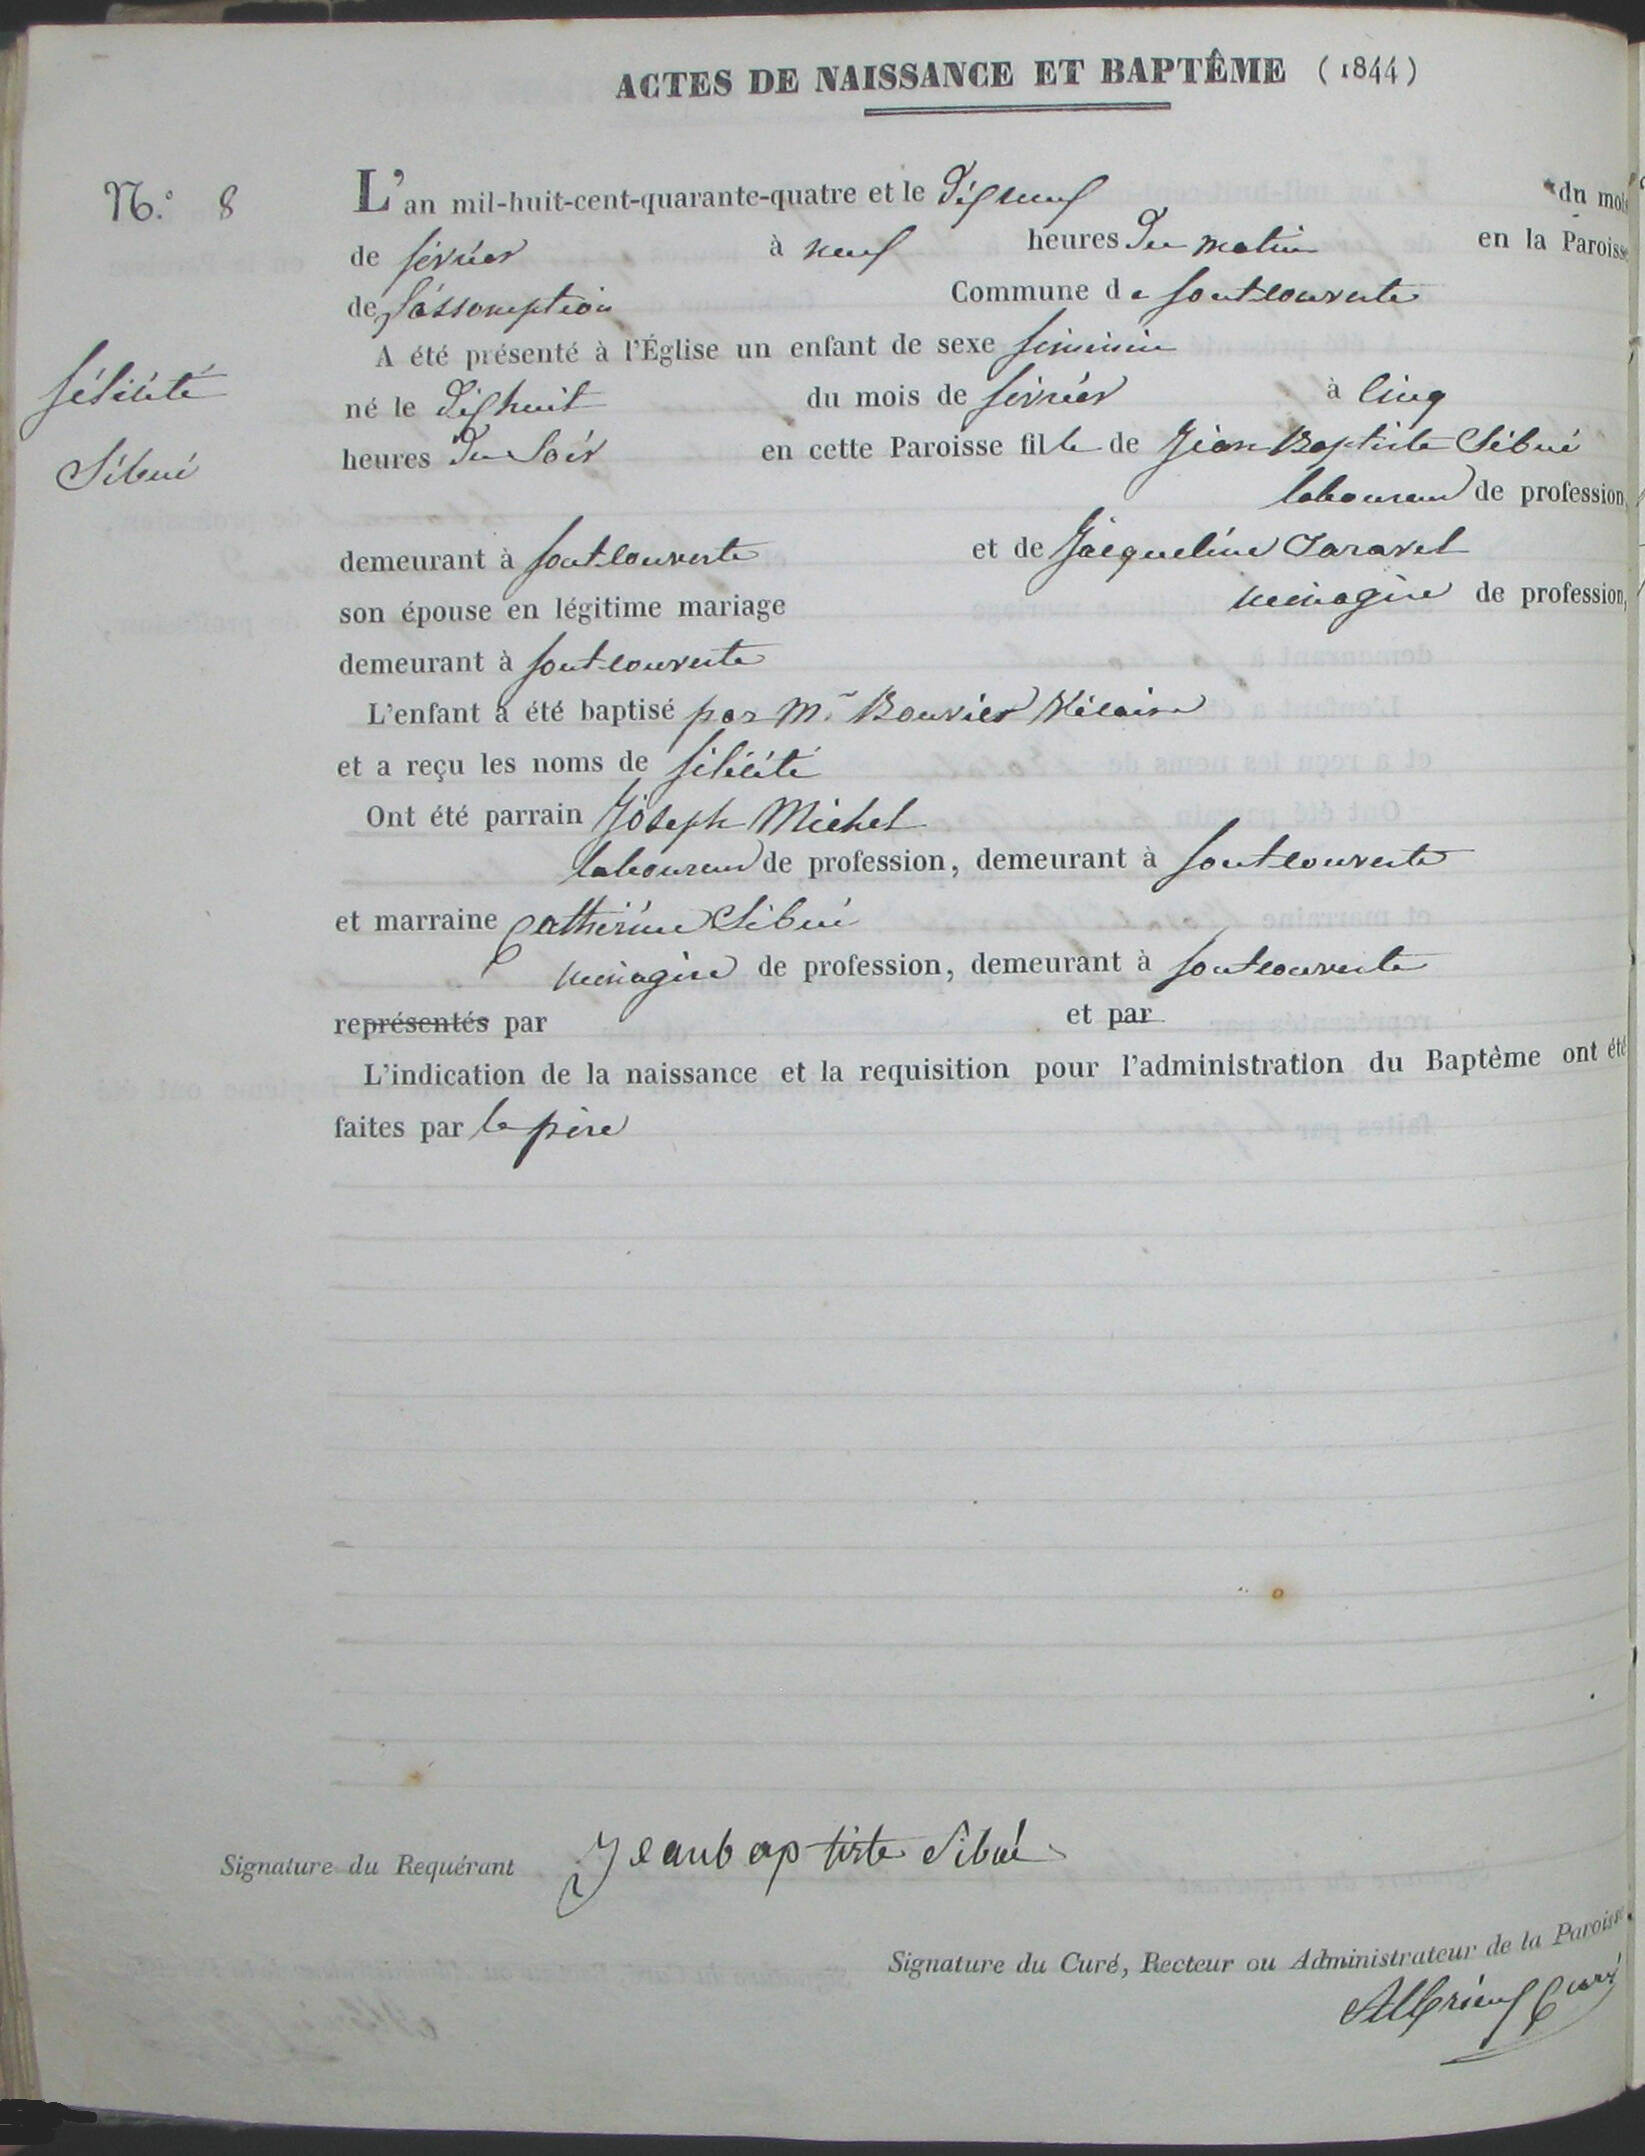 ACTES DE NAISSANCE ET BAPTÊME (1844)
N.° 8
L'an mil-huit-cent-quarante-quatre et le dixneuf du mois
de février à neuf heures du matin en la Paroisse
de L'assomption Commune de fontcouverte
A été présenté à l'Église un enfant de sexe féminin
félicité
né le dixhuit du mois de février à cinq
Sibué
heures du soir en cette Paroisse fille de Jean Baptiste Sibué
laboureur de profession,
demeurant à fontcouverte et de Jacqueline Taravel
son épouse en légitime mariage ménagère de profession,
demeurant à fontcouverte
L'enfant a été baptisé par Mr Bouvier hilaire
et a reçu les noms de félicité
Ont été parrain Joseph Michel
laboureur de profession, demeurant à fontcouverte
et marraine Catherine Sibué
ménagère de profession, demeurant à fontcouverte
représentés par et par
L'indication de la naissance et la requisition pour l'administration du Baptême ont été
faites par le père
Signature du Requérant Jeanbaptiste Sibué
Signature du Curé, Recteur ou Administrateur de la Paroisse.
Curé